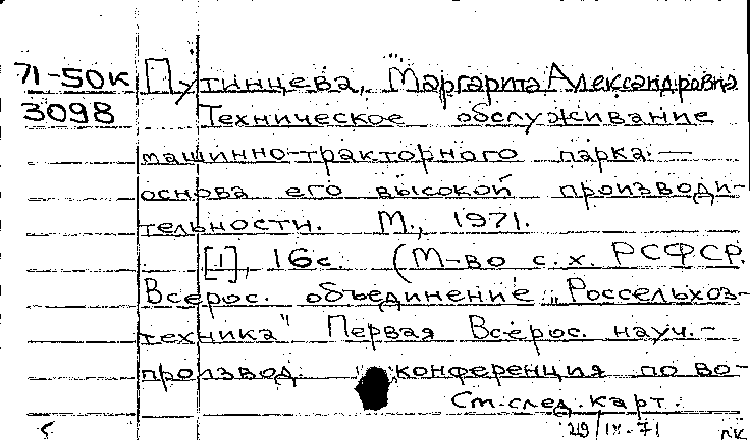 71-50к Путинцева, Маргарита Александровна
3098 Техническое обслуживание
машинно-тракторного парка —
основа его высокой производи-
тельности. М., 1971.
[1], 16с. (М-во с.х. РСФСР.
Всерос. объединение „Россельхоз-
техника" Первая Всерос. науч.-
производ. конференция по во-
См. след. карт.
29/IX-71 пк